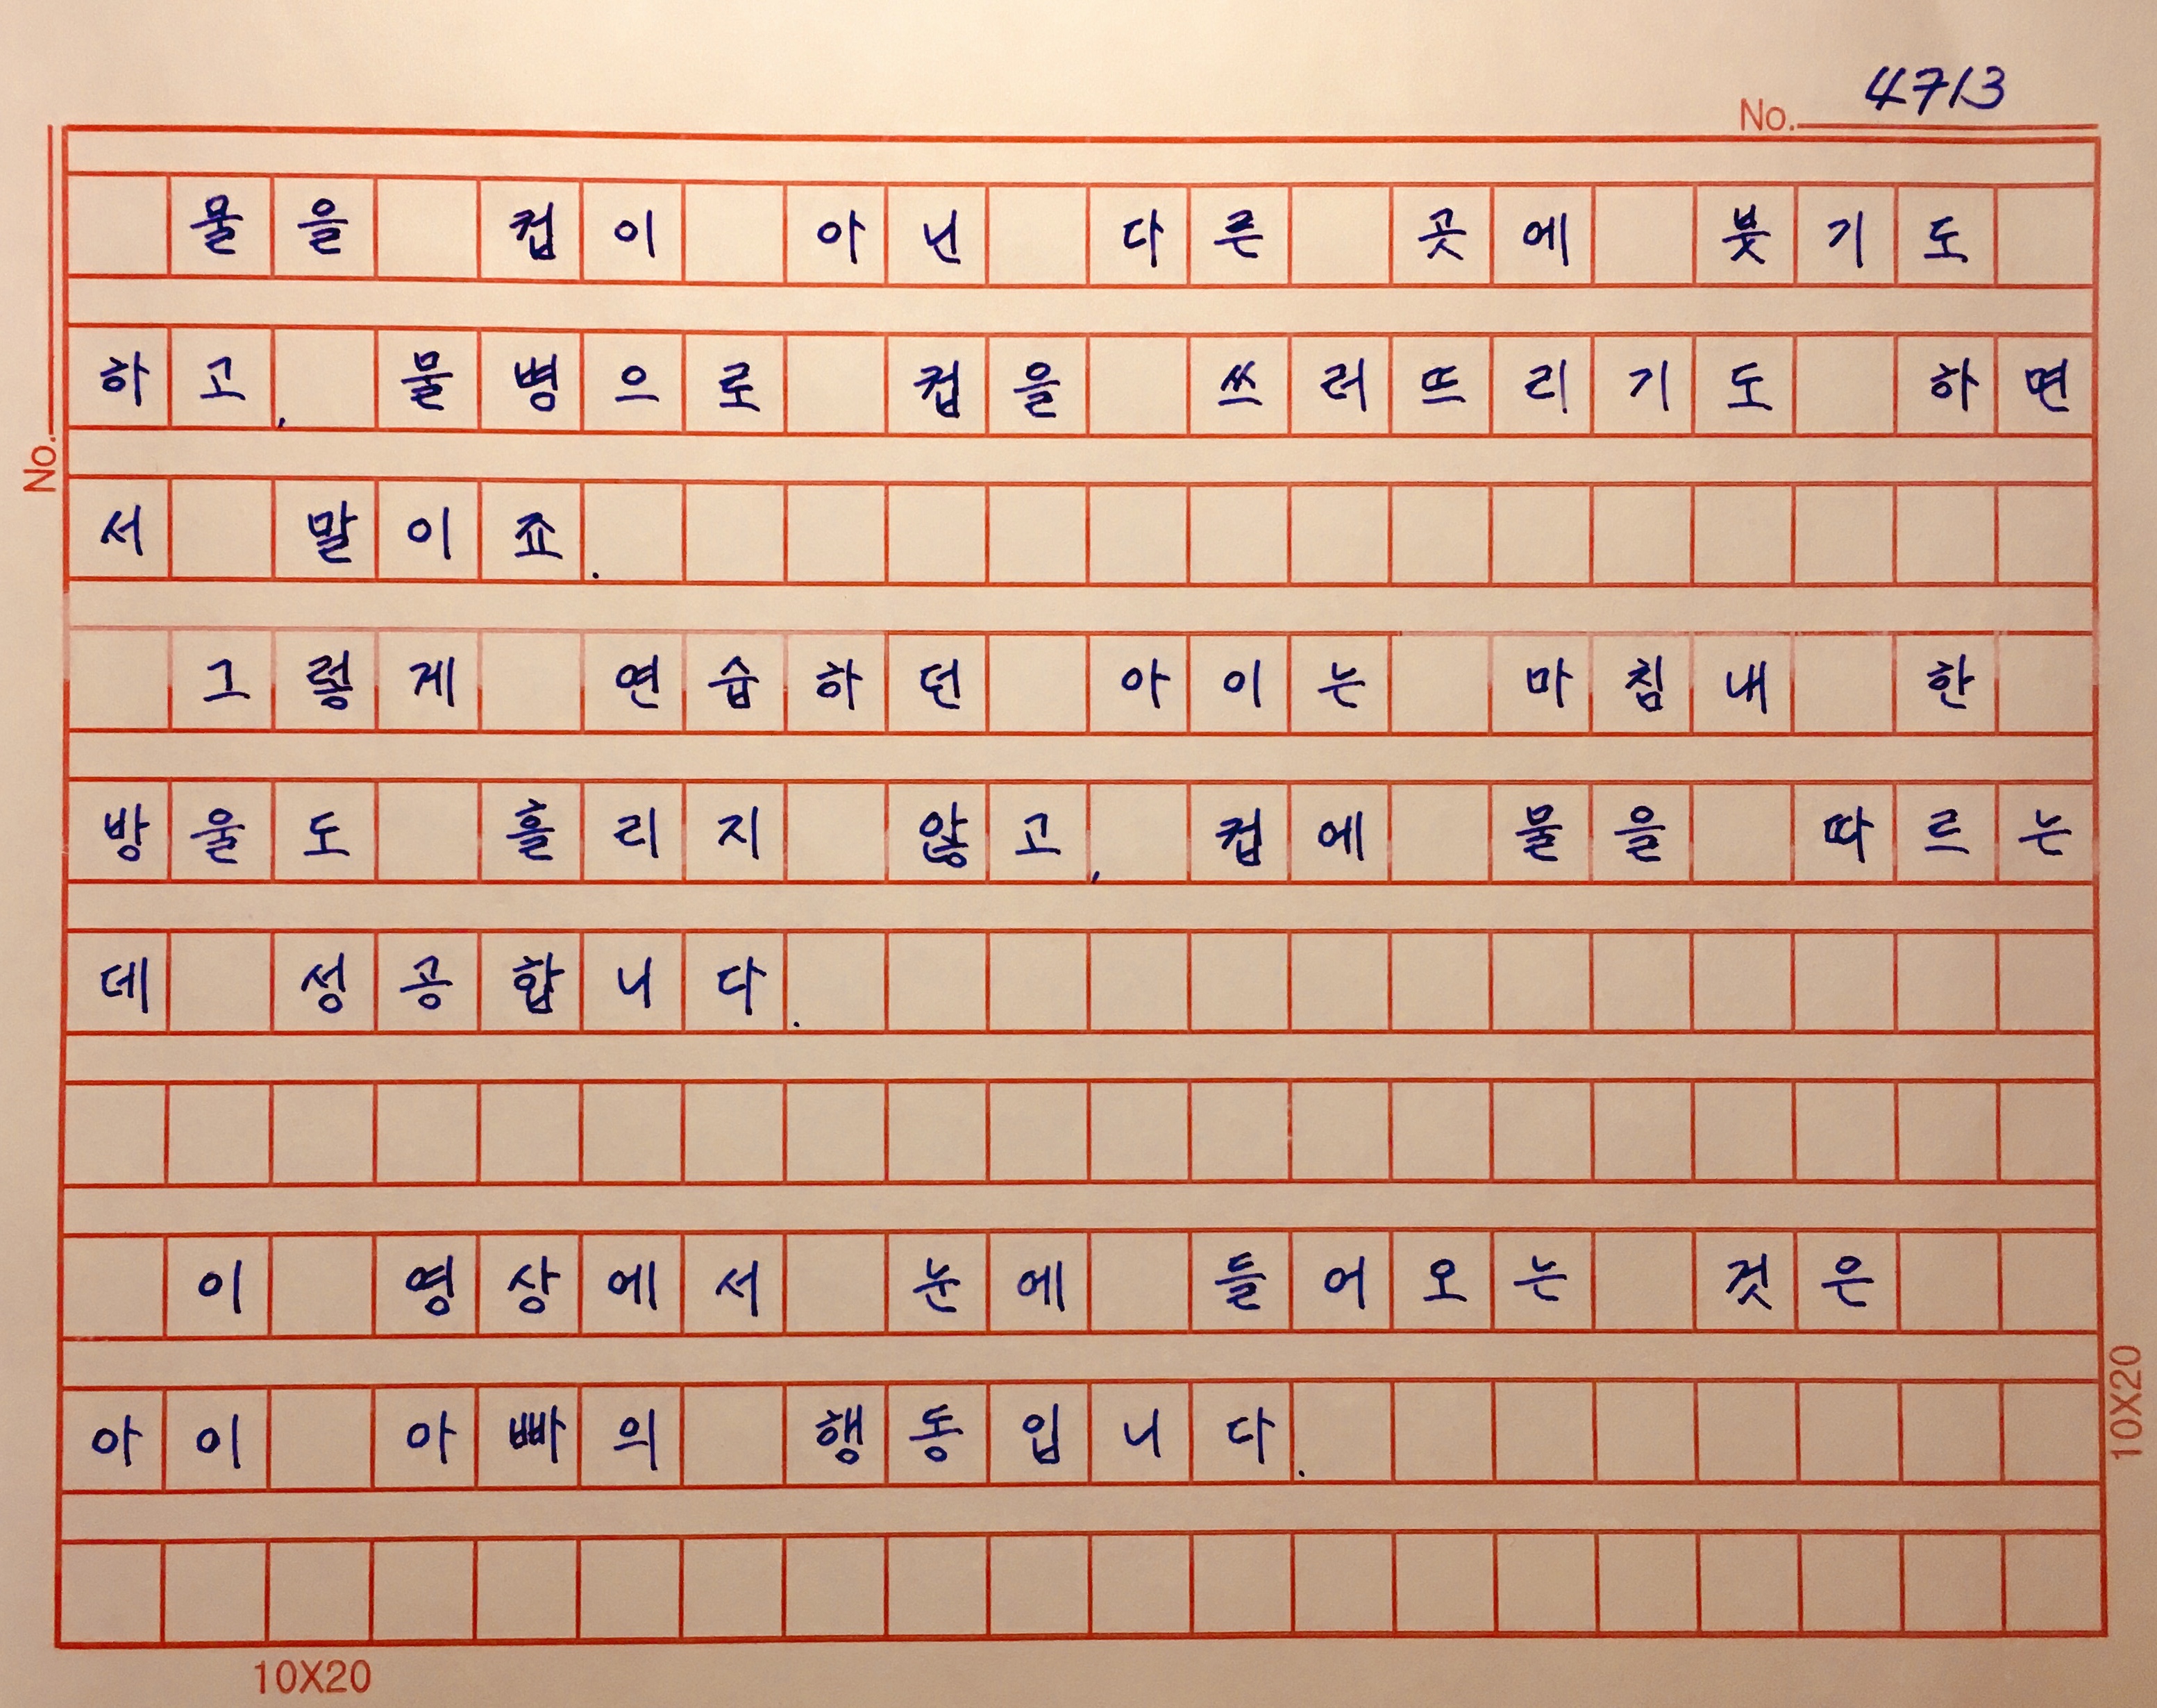 No. 4713
물을 컵이 아닌 다른 곳에 붓기도
하고, 물병으로 컵을 쓰러뜨리기도 하면
서 말이죠.
No.
그렇게 연습하던 아이는 마침내 한
방울도 흘리지 않고, 컵에 물을 따르는
데 성공합니다.
이 영상에서 눈에 들어오는 것은
아이 아빠의 행동입니다.
10X20
10X20